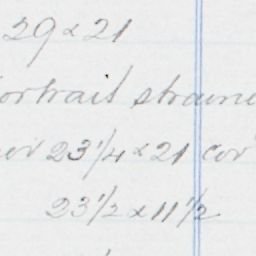 29 x 21
ortrait straine
23 1/4 x 21 cor
23 1/2 x 11 1/2